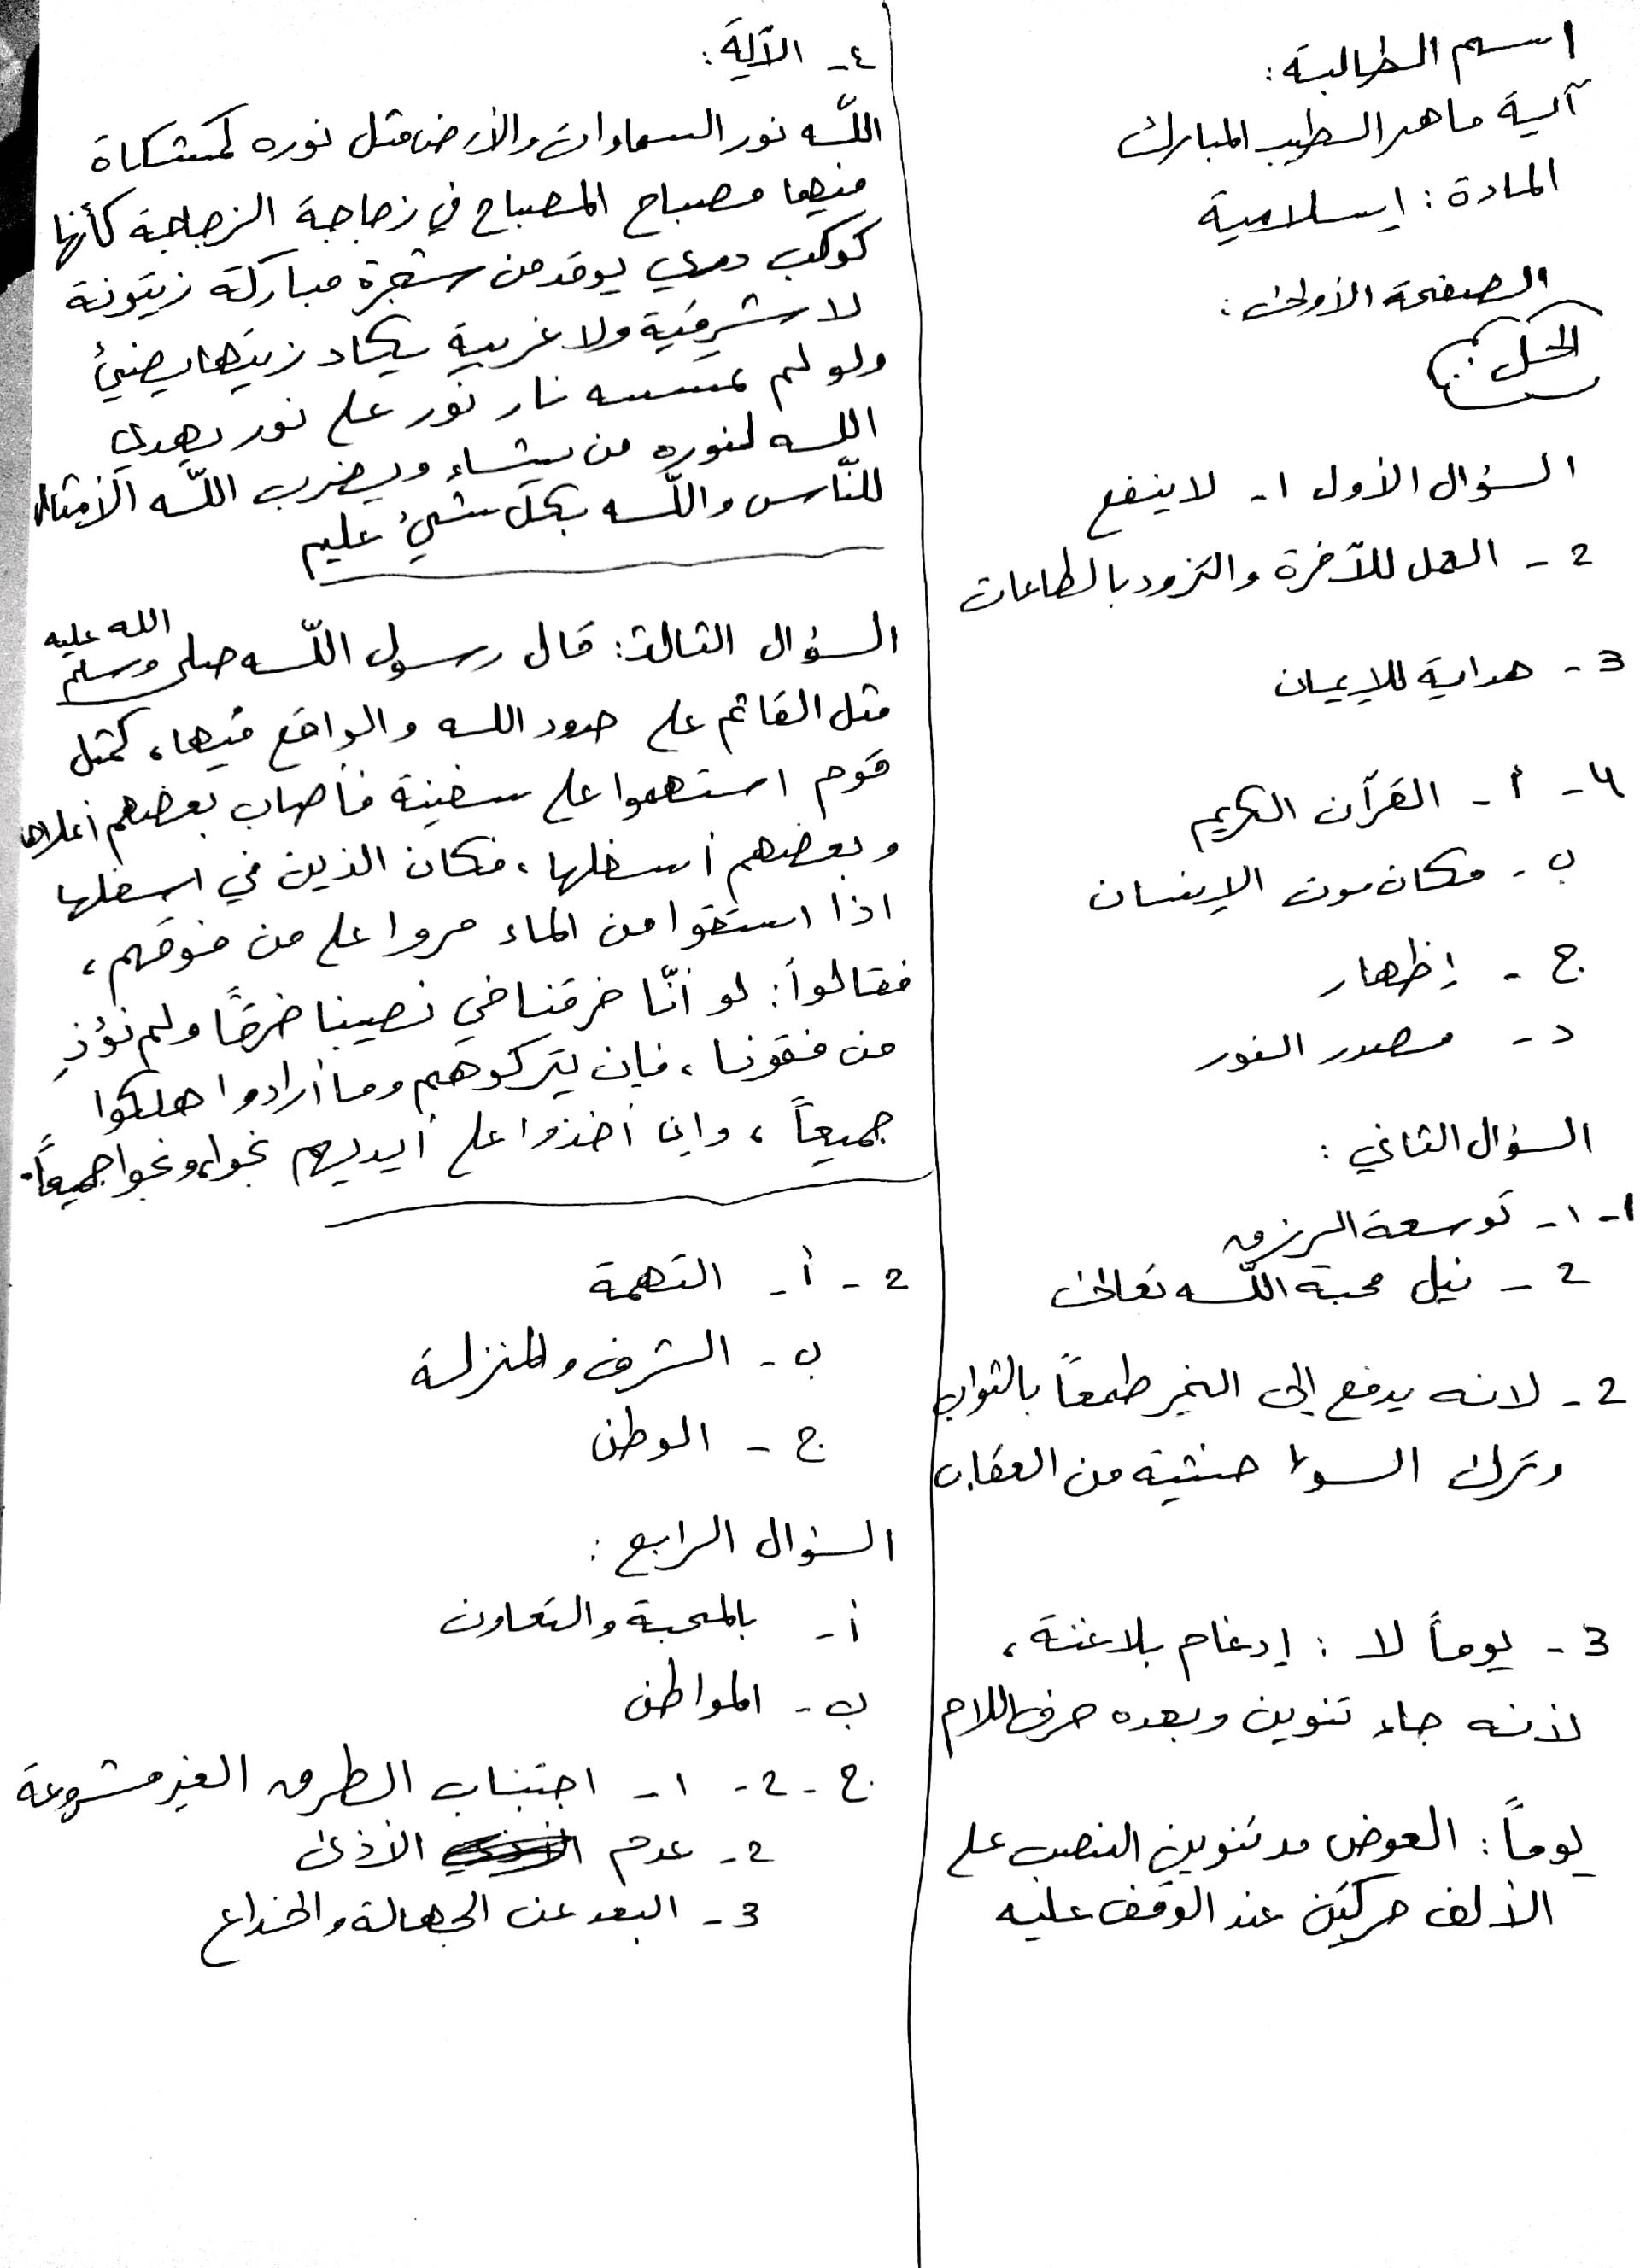 اسم الطالبة:
آية ماهر الطيب المبارك
المادة: إسلامية
الصفحة الأولى:
الحل:
السؤال الأول ١- لا ينفع
2 - العمل للآخرة والتزود بالطاعات
3 - هداية للإيمان
4 - أ - القرآن الكريم
ب - مكان موت الإنسان
ج - إظهار
د - مصدر النور
السؤال الثاني:
1 - ١ - توسعة الرزق
2 - نيل محبة اللّه تعالى
2 - لانه يدفع إلى الخير طمعاً بالثواب
وترك السوء خشية من العقاب
3 - يوماً لا: إدغام بلا غنة،
لأنه جاء تنوين وبعده حرف اللام
يوماً: العوض مد تنوين النصب على
الألف حركتين عند الوقف عليه
٤ - الآية:
اللّه نور السماوات والأرض مثل نوره كمشكاة
فيها مصباح المصباح في زجاجة الزجاجة كأنها
كوكب دري يوقد من شجرة مباركة زيتونة
لا شرقية ولا غربية يكاد زيتها يضيئ
ولو لم تمسسه نار نور على نور يهدي
اللّه لنوره من يشاء ويضرب اللّه الأمثال
للنّاس واللّه بكل شيئ عليم
السؤال الثالث: قال رسول اللّه صلى الله عليه وسلم
مثل القائم على حدود الله والواقع فيها، كمثل
قوم استهموا على سفينة فأصاب بعضهم أعلاها
وبعضهم أسفلها، فكان الذين في اسفلها
اذا استقوا من الماء مروا على من فوقهم،
فقالوا: لو أنّا خرقنا في نصيبنا خرقاً ولم نؤذِ
من فقونا، فإن يتركوهم وما أرادوا هلكوا
جميعاً، وإن أخذوا على أيديهم نجوا، ونجوا جميعاً.
2 - أ - التهمة
ب - الشرف والمنزلة
ج - الوطن
السؤال الرابع:
أ - بالمحبة والتعاون
ب - المواطن
ج - 2 - ١ - اجتناب الطرق الغير مشروعة
2 - عدم الأذى
3 - البعد عن الجهالة والخداع